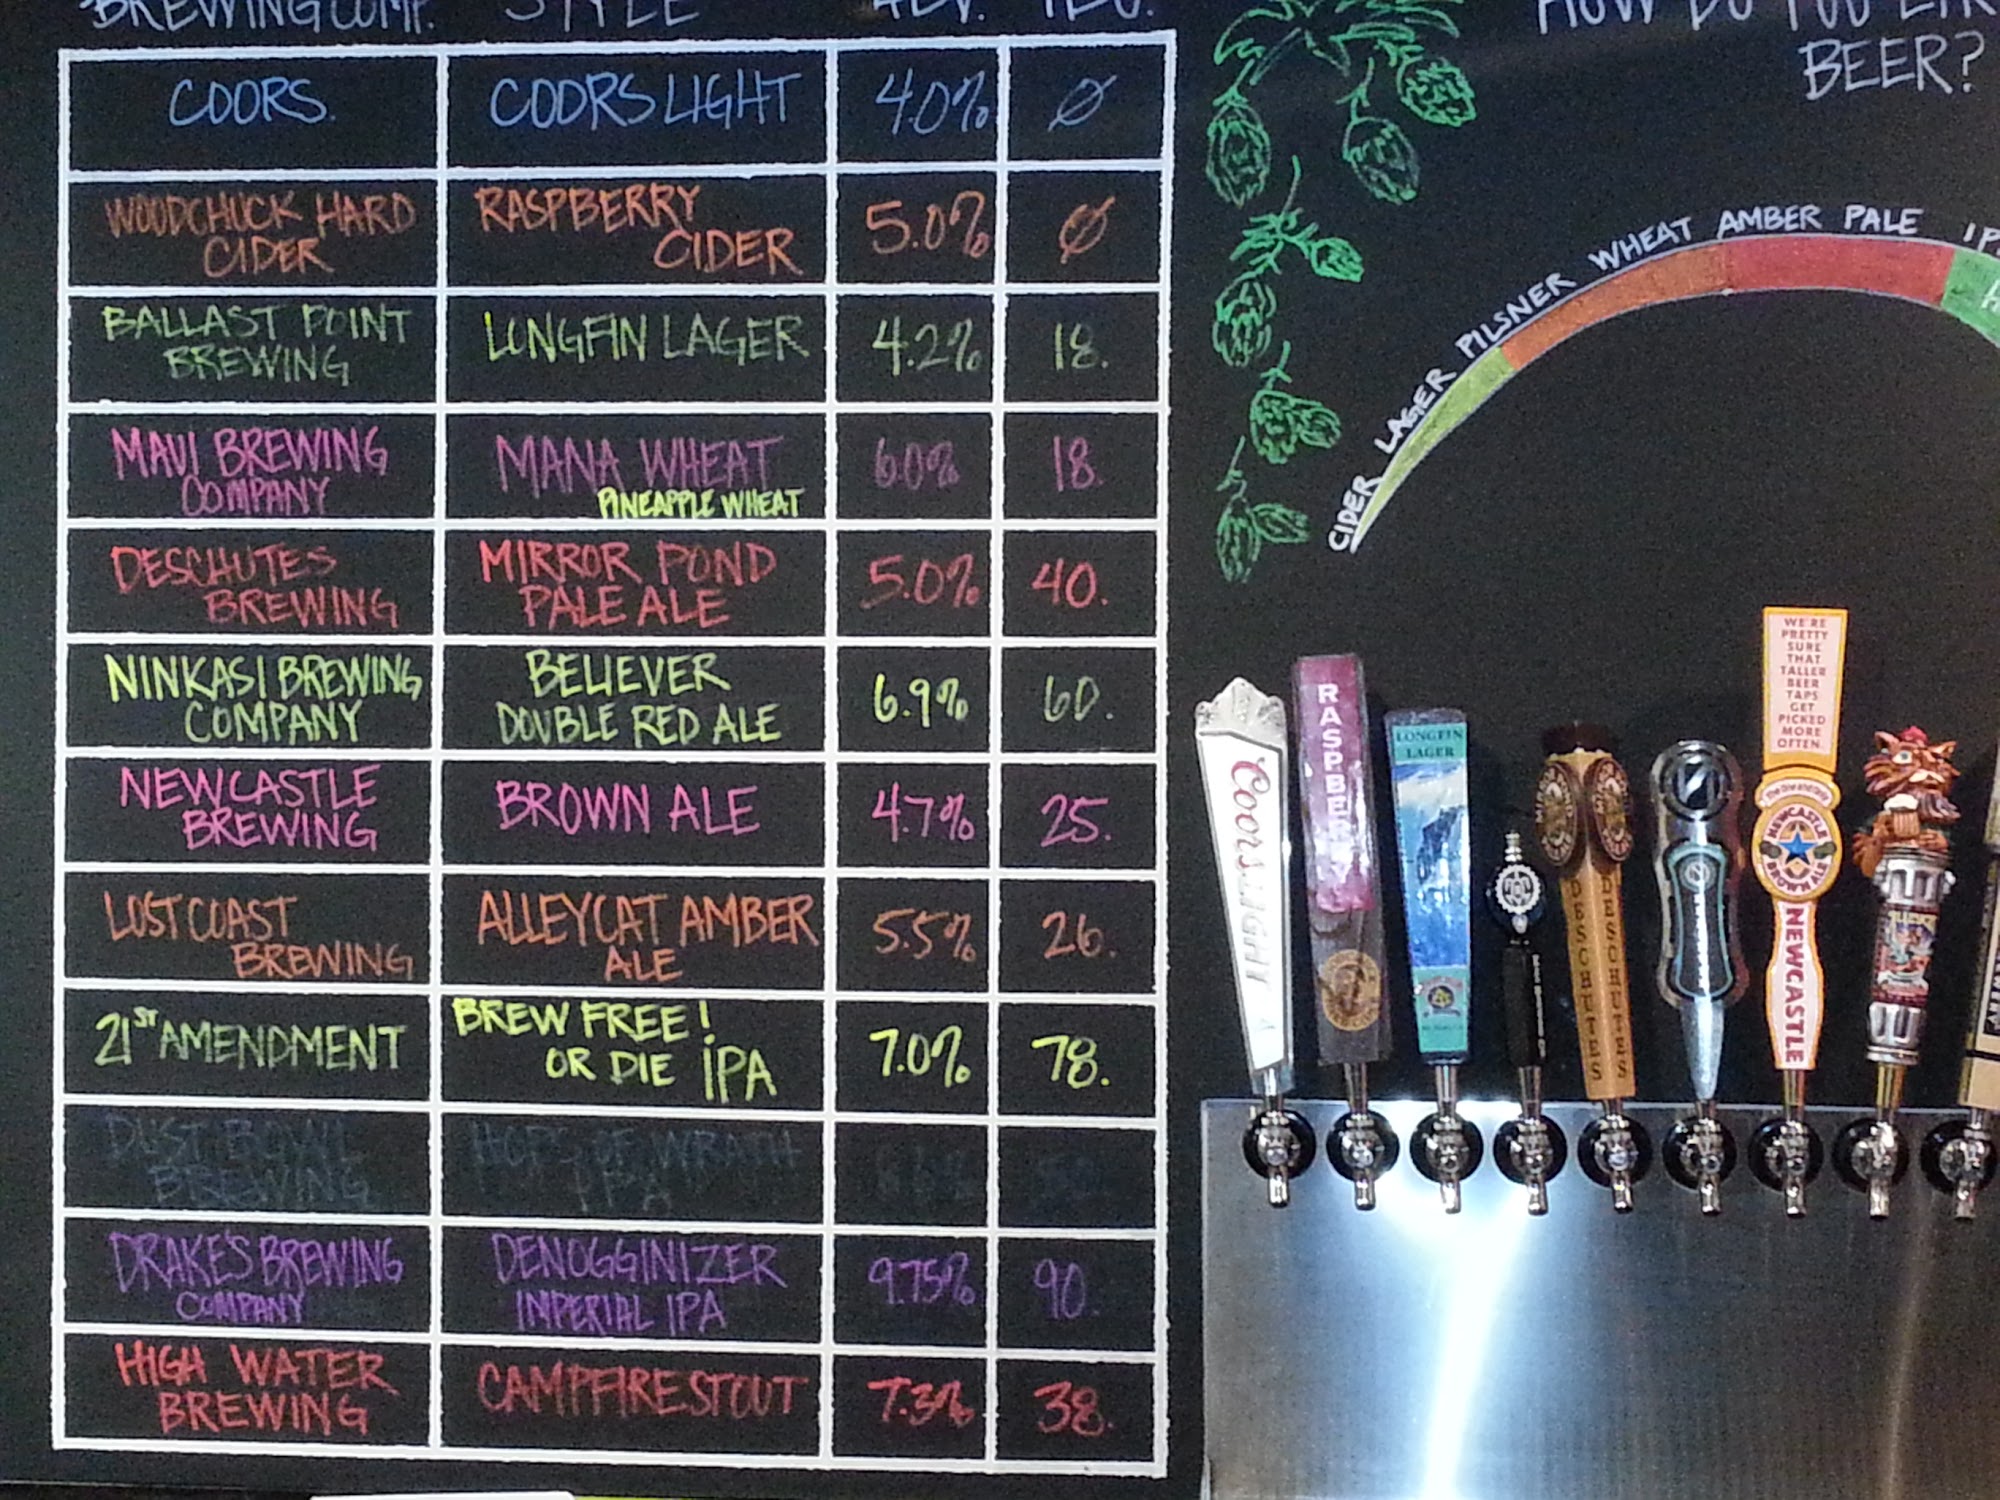 BREWING COMP. STYLE ALC. IBU.
COORS. COORS LIGHT 4.0% Ø
WOODCHUCK HARD
CIDER
RASPBERRY
CIDER
5.0% Ø
BALLAST POINT
BREWING
LONGFIN LAGER 4.2% 18.
MAUI BREWING
COMPANY
MANA WHEAT
PINEAPPLE WHEAT
6.0% 18.
DESCHUTES
BREWING
MIRROR POND
PALE ALE
5.0% 40.
NINKASI BREWING
COMPANY
BELIEVER
DOUBLE RED ALE
6.9% 60.
NEWCASTLE
BREWING
BROWN ALE 4.7% 25.
LOST COAST
BREWING
ALLEYCAT AMBER
ALE
5.5% 26.
21ST AMENDMENT
BREW FREE!
OR DIE IPA
7.0% 78.
DUST BOWL
BREWING
HOPS OF WRATH
IPA
DRAKE'S BREWING
COMPANY
DENOGGINIZER
IMPERIAL IPA
9.75% 90.
HIGH WATER
BREWING
CAMPFIRE STOUT 7.3% 38.
HOW DO YOU
BEER?
CIDER LAGER PILSNER WHEAT AMBER PALE
Coors LIGHT
RASPBERRY
LONGFIN
LAGER
DESCHUTES
DESCHUTES
WE'RE
PRETTY
SURE
THAT
TALLER
BEER
TAPS
GET
PICKED
MORE
OFTEN.
The One and Only
NEWCASTLE
BROWN ALE
NEWCASTLE